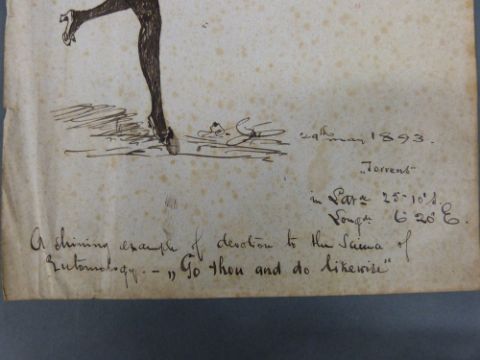 29th may 1893.
„Torrens"
in Latde 25°10' S.
Longde 6° 20' E.
A shining example of devotion to the Science of
Entomology. – „Go thou and do likewise"